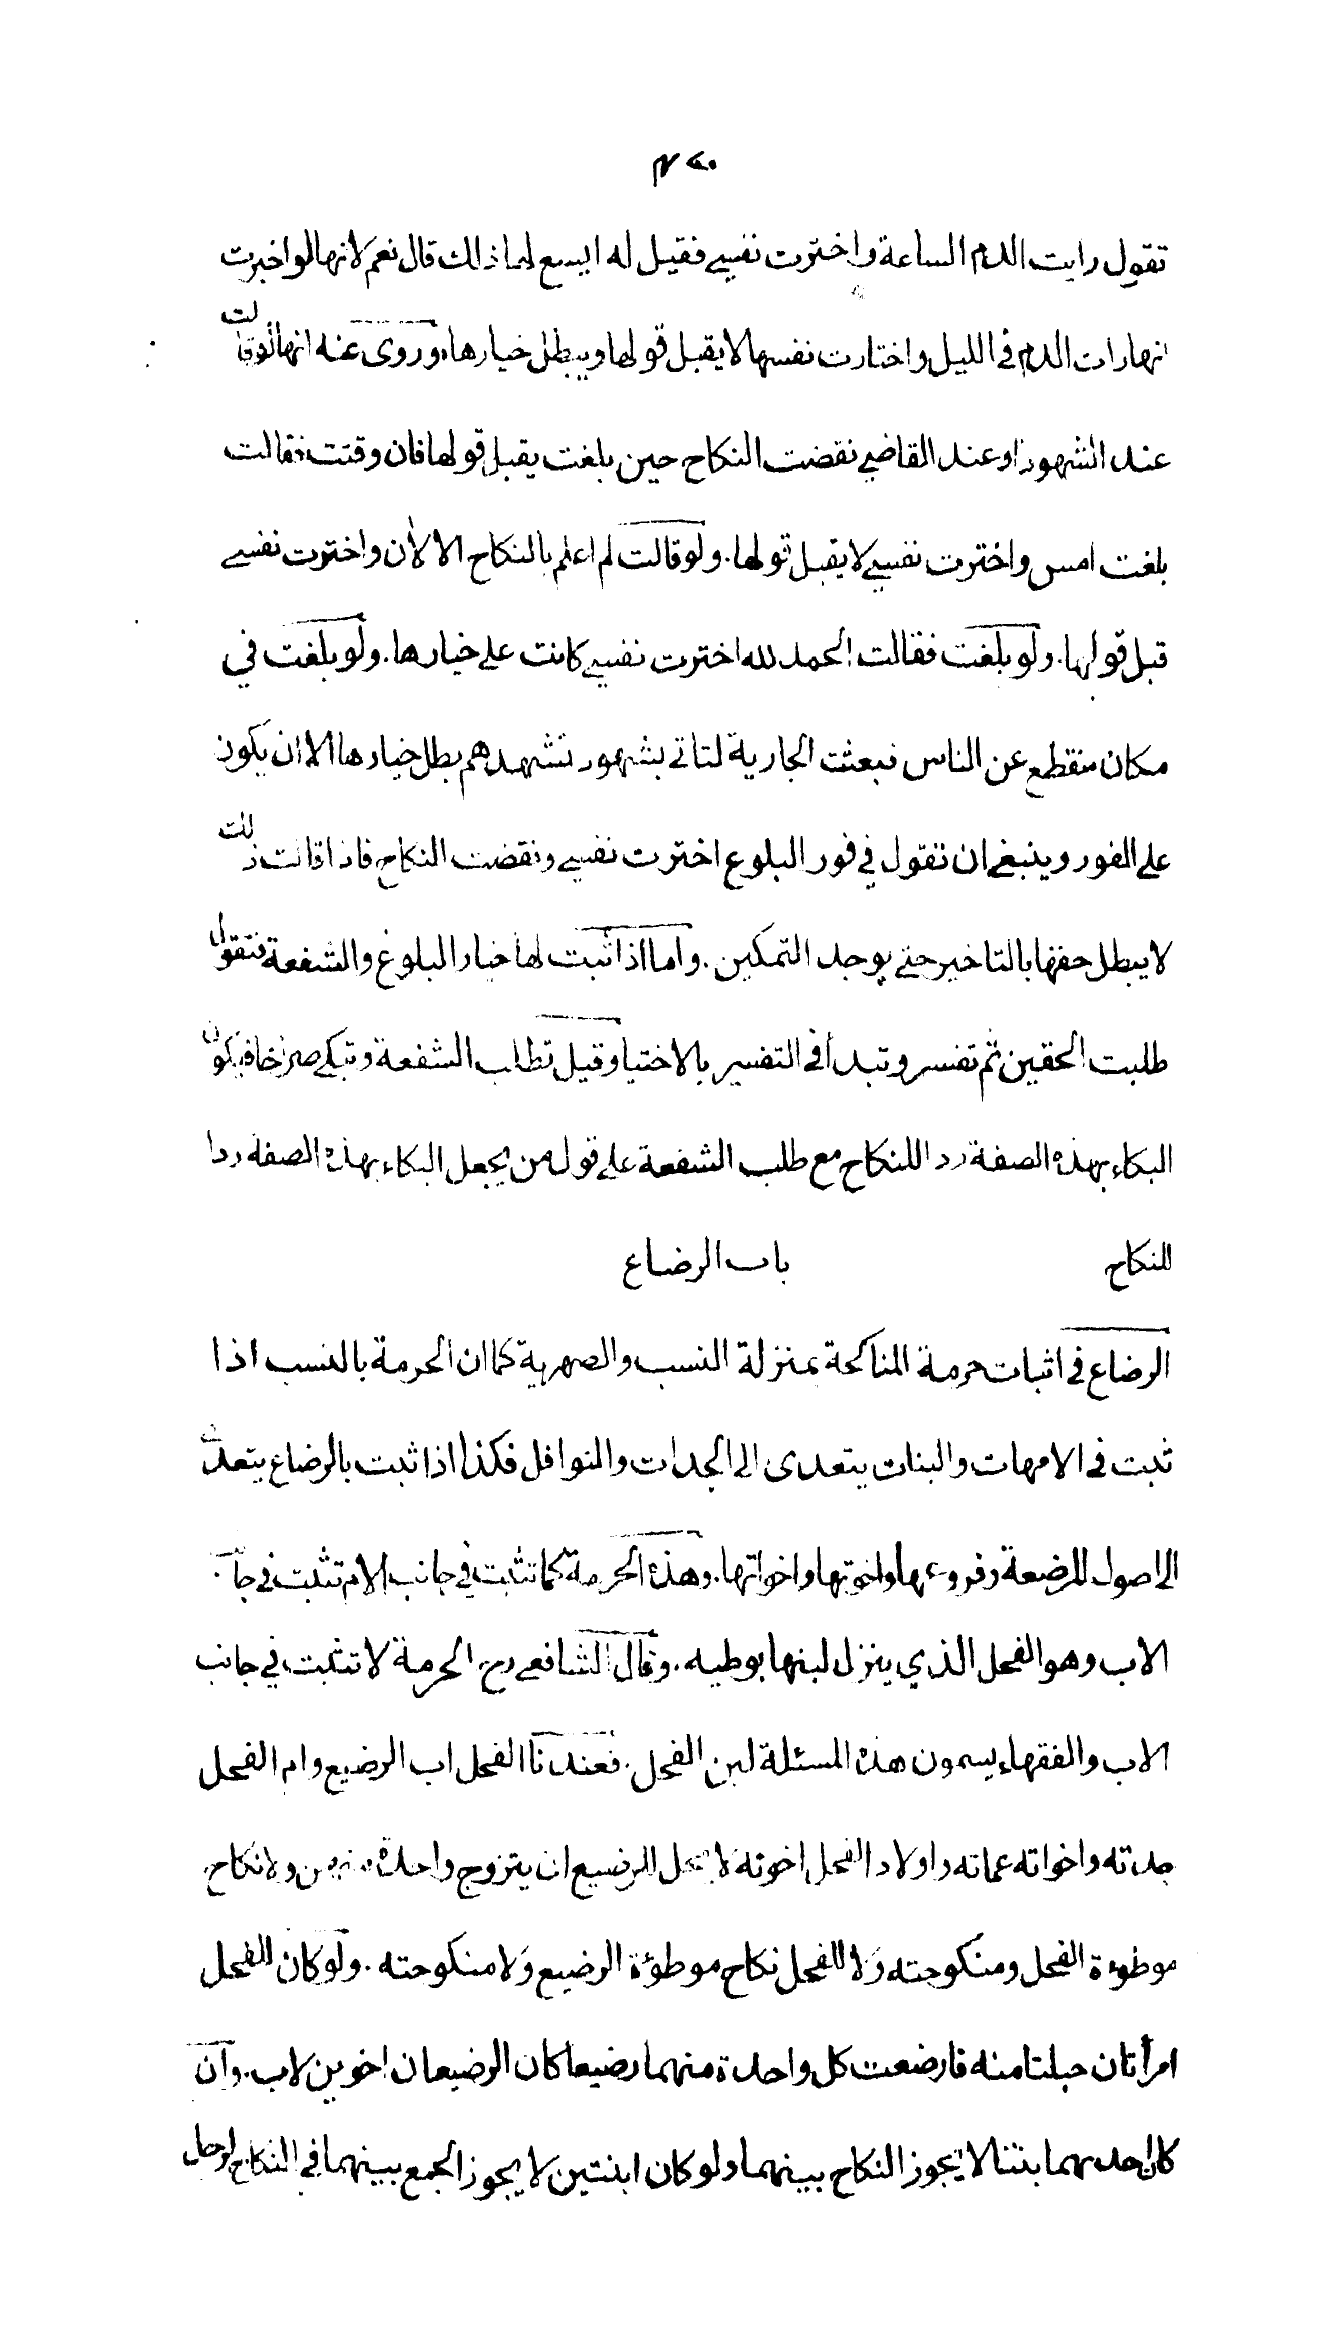 تقول رايت الدم الساعة واخترت نفسي فقيل له ايسع لها ذالك قال نعم لانها لو اخبرت
انها رات الدم فى الليل واختارت نفسها لا يقبل قولها ويبطل خيارها وروى عنه انها لو قالت
عند الشهود او عند القاضي نقضت النكاح حين بلغت يقبل قولها فان وقتت فقالت
بلغت امس واخترت نفسي لا يقبل قولها. ولو قالت لم اعلم بالنكاح الا لان واخترت نفسي
قبل قولها. ولو بلغت فقالت الحمد لله اخترت نفسي كانت على خيارها. ولو بلغت في
مكان منقطع عن الناس فبعثت الجارية لتاتي بشهود تشهدهم بطل خيارها الا ان يكون
على الفور وينبغي ان تقول في فور البلوغ اخترت نفسي ونقضت النكاح فاذا قالت ذلك
لا يبطل حقها بالتاخير حتى يوجد التمكين. واما اذا ثبت لها خيار البلوغ والشفعة فتقول
طلبت الحقين ثم تفسر وتبدأ فى التفسير بالاختيار وقيل تطلب الشفعة وتبكي صراخا فيكون
البكاء بهذه الصفة ردا للنكاح مع طلب الشفعة على قول من يجعل البكاء بهذه الصفة ردا
للنكاح باب الرضاع
الرضاع فى اثبات حرمة المناكحة بمنزلة النسب والصهرية كما ان الحرمة بالنسب اذا
ثبت فى الامهات والبنات يتعدى الى الجدات والنوافل فكذا اذا ثبت بالرضاع يتعدى
الى اصول المرضعة وفروعها واخوتها واخواتها. وهذه الحرمة كما تثبت في جانب الام تثبت في جانب
الاب وهو الفحل الذي ينزل لبنها بوطيه. وقال الشافعي رح الحرمة لا تثبت في جانب
الاب والفقهاء يسمون هذه المسئلة لبن الفحل. فعندنا الفحل اب الرضيع وام الفحل
جدته واخواته عماته واولاد الفحل اخوته لا يحل للرضيع ان يتزوج واحدة منهن ولا نكاح
موطوءة الفحل ومنكوحته ولا للفحل نكاح موطؤة الرضيع ولا منكوحته. ولو كان للفحل
امرأتان حبلتا منه فارضعت كل واحدة منهما رضيعا كان الرضيعان اخوين لاب. وان
كان احدهما بنتا لا يجوز النكاح بينهما ولو كان ابنتين لا يجوز الجمع بينهما في النكاح لرجل